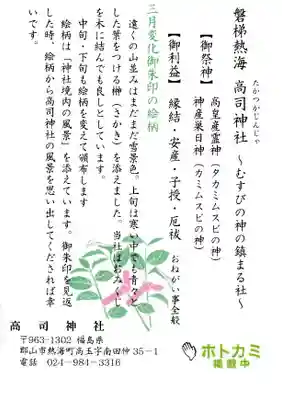 たかつかじんじゃ
磐梯熱海 高司神社 ～むすびの神の鎮まる社～
【御祭神】
高皇産霊神（タカミムスビの神）
神産巣日神（カミムスビの神）
【御利益】 縁結・安産・子授・厄祓 おねがい事全般
三月変化御朱印の絵柄
遠くの山並みはまだまだ雪景色。上旬は寒い中でも青々と
した葉をつける榊（さかき）を添えました。当社はおみくじ
を木に結んでも良しとしています。
中旬・下旬も絵柄を変えて頒布します
絵柄は「神社境内の風景」を添えています。御朱印を見返
した時、絵柄から高司神社の風景を思い出してくだされば幸
いです。
高司神社
〒963-1302 福島県
郡山市熱海町高玉字南田仲35-1
電話 024-984-3316
ホトカミ
掲載中